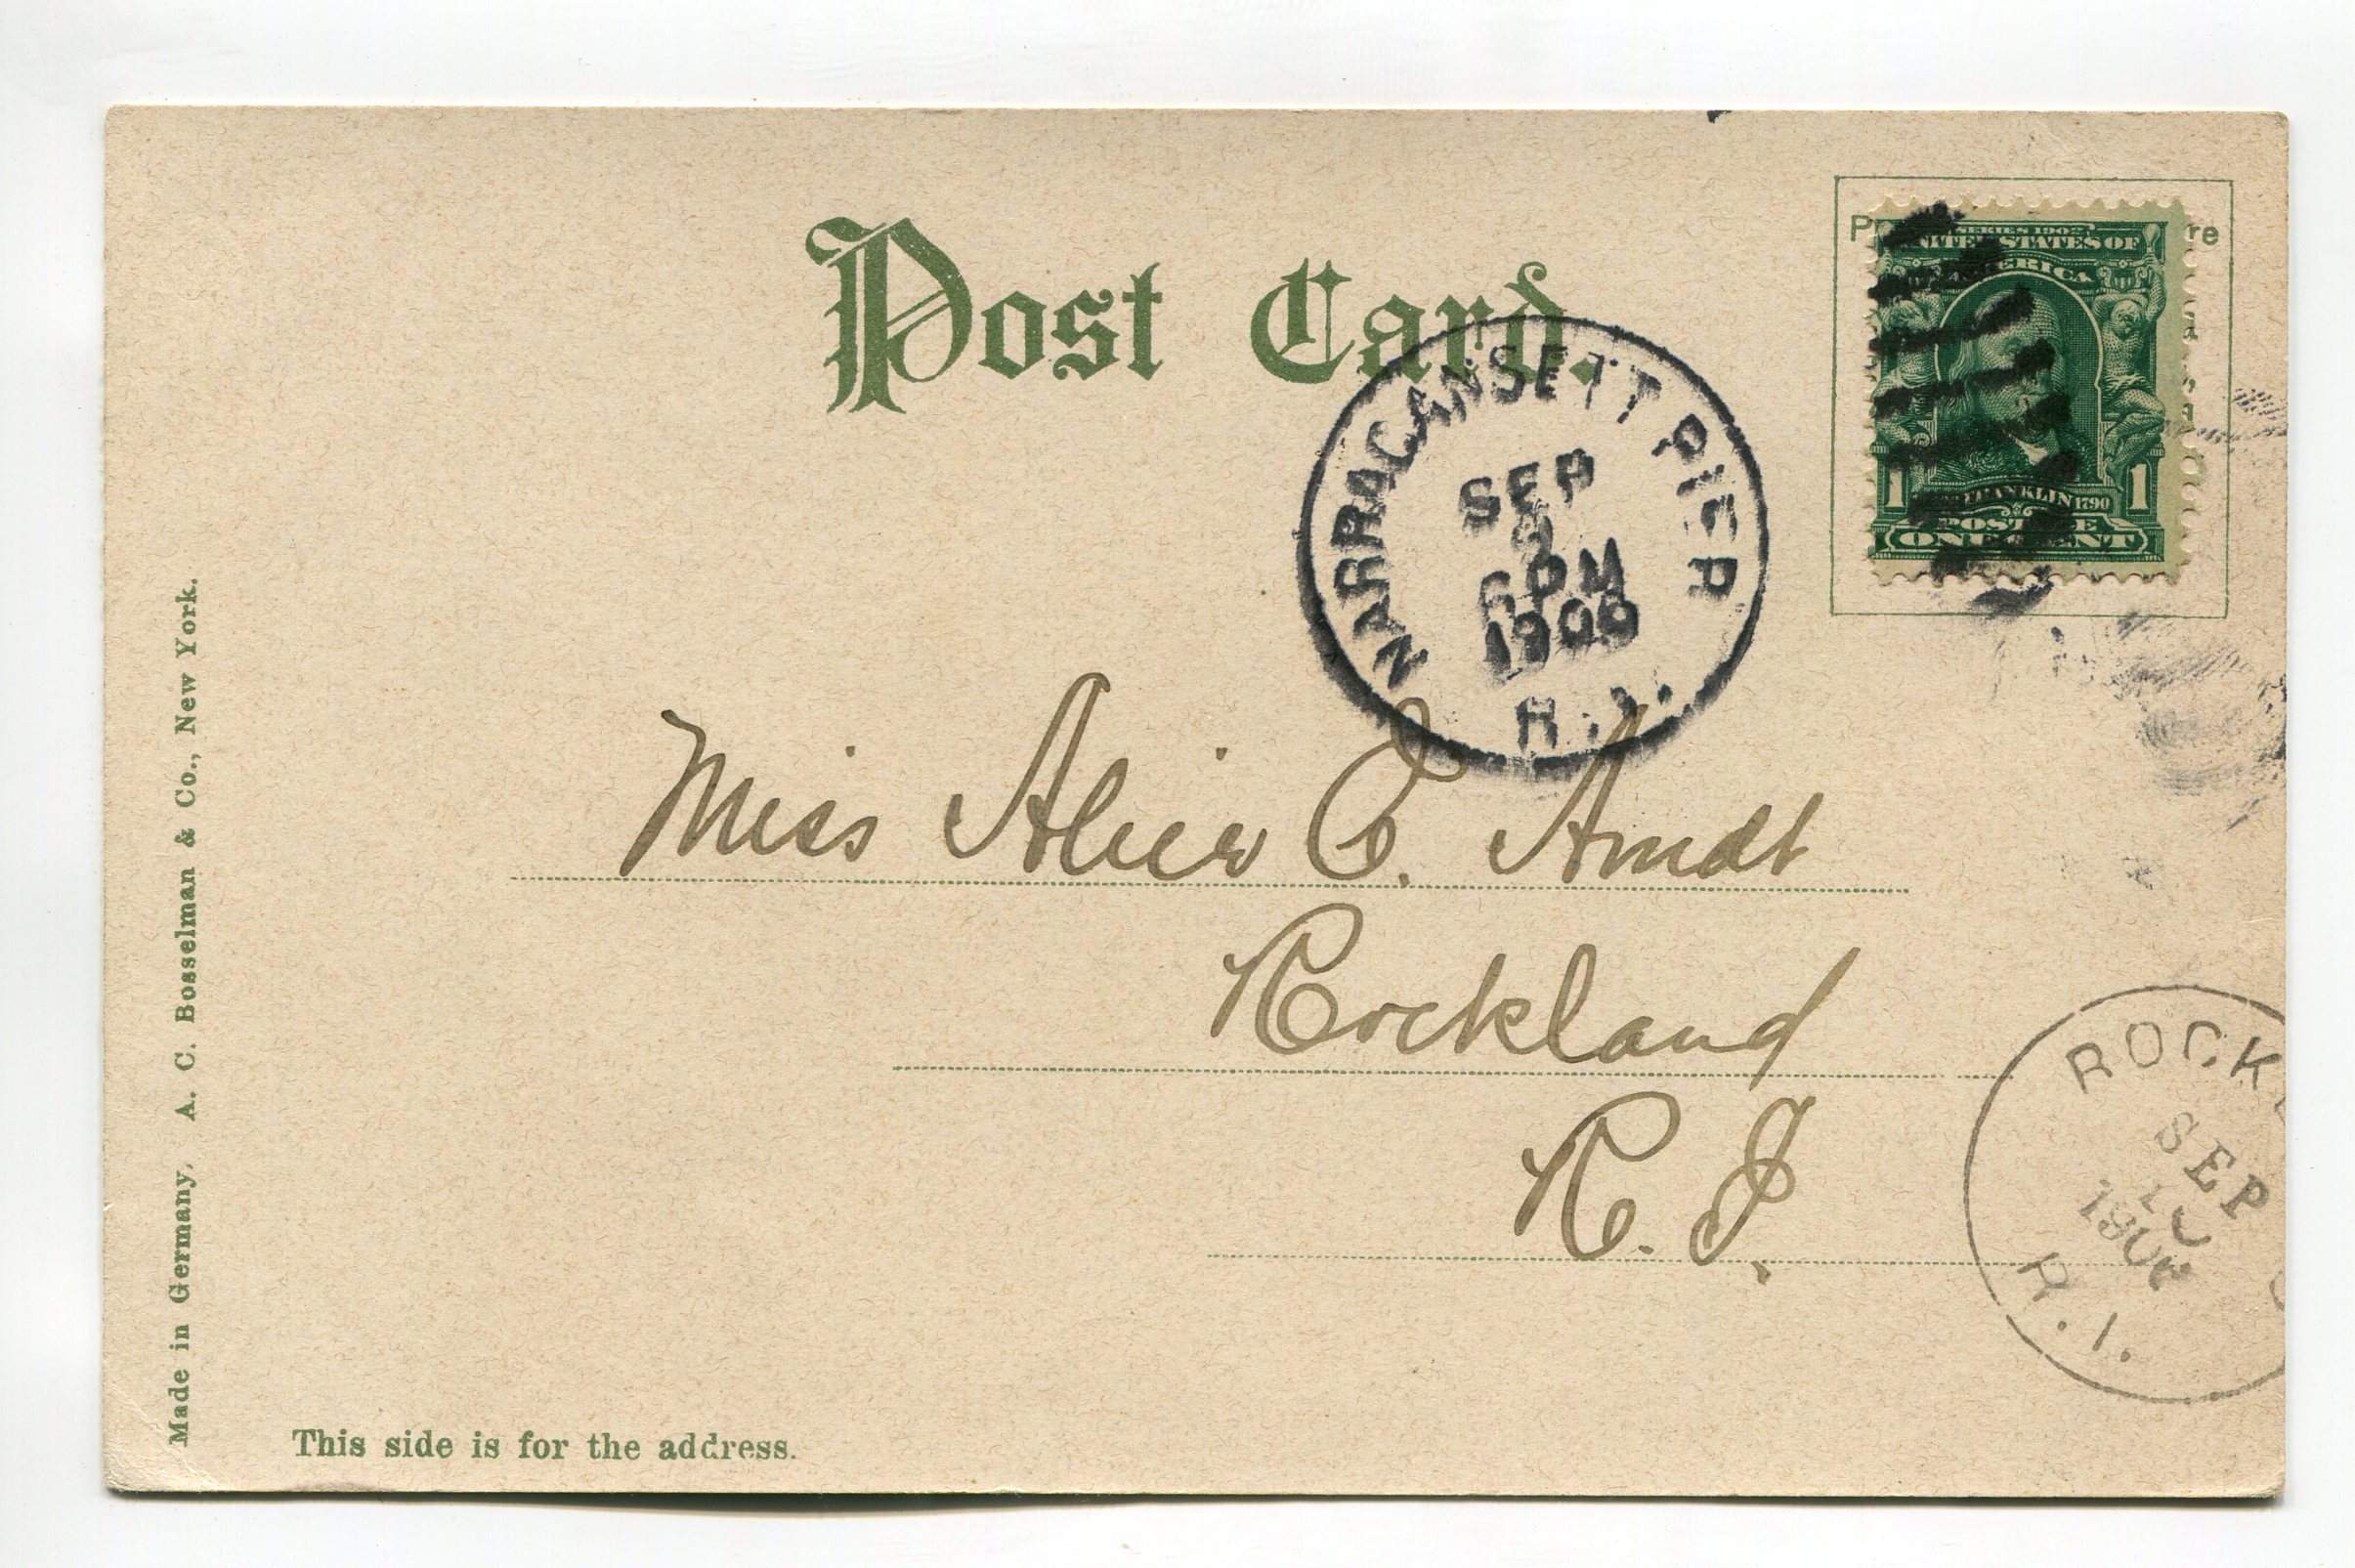 Post Card.
SERIES 1902
UNITED STATES OF
AMERICA
FRANKLIN 1790
1 1
POSTAGE
ONE CENT
re
NARRAGANSETT PIER
SEP
9
6 PM
1906
R.I.
Miss Alice E. Arndt
Rockland
R. I.
ROCK
SEP
10
1906
R.I.
Made in Germany, A. C. Bosselman & Co., New York.
This side is for the address.